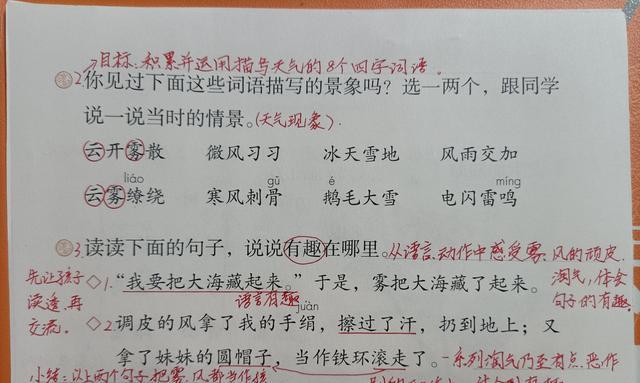 目标:积累并运用描写天气的8个四字词语。
2.你见过下面这些词语描写的景象吗？选一两个，跟同学
说一说当时的情景。(天气现象).
云开雾散 微风习习 冰天雪地 风雨交加
liáo gǔ é míng
云雾缭绕 寒风刺骨 鹅毛大雪 电闪雷鸣
3.读读下面的句子，说说有趣在哪里。从语言、动作中感受雾、风的顽皮、
淘气,体会
句子的有趣。
先让孩子
读透,再
交流。
◇1.“我要把大海藏起来。”于是，雾把大海藏了起来。
语言有趣
juàn
◇2.调皮的风拿了我的手绢，擦过了汗，扔到地上；又
拿了妹妹的圆帽子，当作铁环滚走了。一系列淘气乃至有点恶作
小结:以上两个句子把雾、风都当作